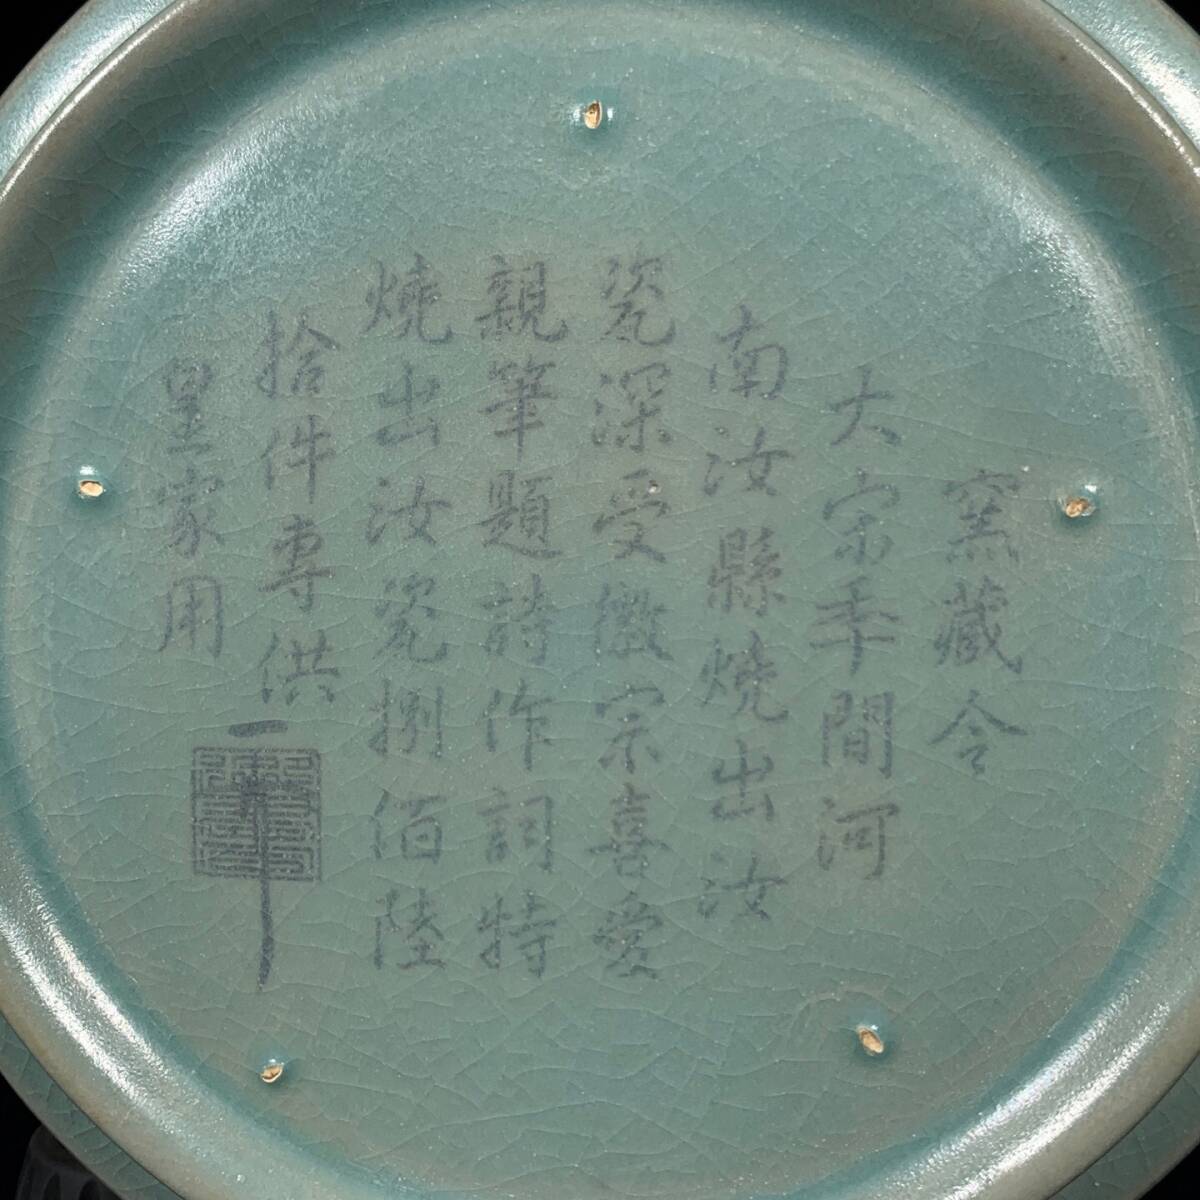 窯藏令
大宗年間河
南汝縣燒出汝
瓷深受徽宗喜愛
親筆題詩作詞特
燒出汝瓷捌佰陸
拾件專供
皇家用